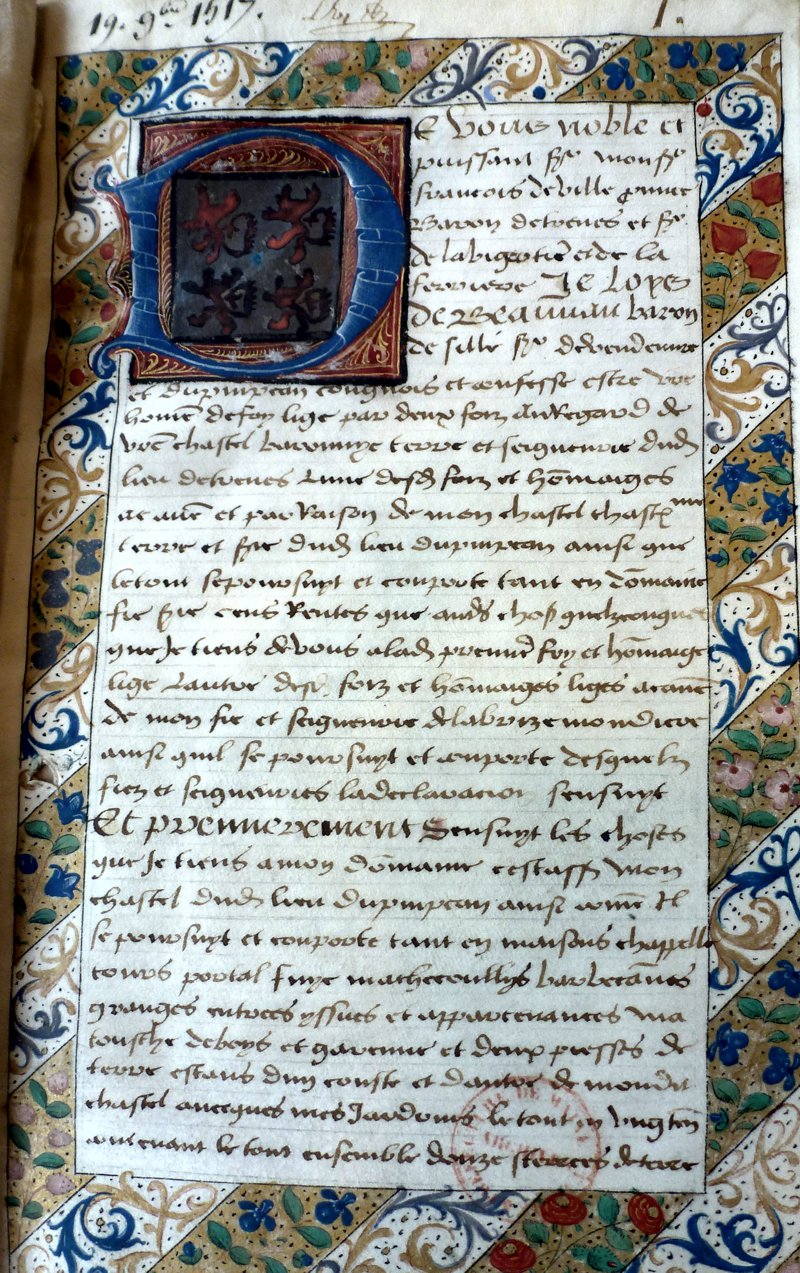 19. 9bre 1517.
1.
DE vous noble et
puissant sr monsr
francois de ville prince
Baron de treves et sr
de la bigotiere et de la
ferriere Je loys
de Beaumau baron
de sille sr de vendeuvre
et du pimpean congnois et confesse estre vre
homē de foy lige par deux foiz au Regard de
vrē chastel baronnye terre et seigneurie dud
lieu de treves Lune desd foiz et hōmaiges
a cause et par Raison de mon chastel
terre et srie dud lieu du pimpean ainsi que
le tout se poursuyt et comporte tant en domaine
fie srie cens Rentes que autres choses quelzconques
que Je tiens de vous a lad premiere foy et hōmaige
lige Lautre desd foiz et hōmaiges liges a cause
de mon fie et seigneurie de la brizemondiere
ainsi quil se poursuyt et comporte desquelz
fiez et seigneuries la declaracion sensuyt
Et premierement Sensuyt les choses
que Je tiens a mon domaine cestass mon
chastel dud lieu du pimpean ainsi comē Il
se poursuyt et comporte tant en maisons chappelle
tours portal fuye machecoullys barbecannes
granges entrees yssues et appartenances ma
tousche de boys et garenne et deux piesses de
terre estans dun couste et dautre de mondit
chastel avecques mes Jardrins le tout en ung ten
contenant le tout ensemble douze sterees de terre